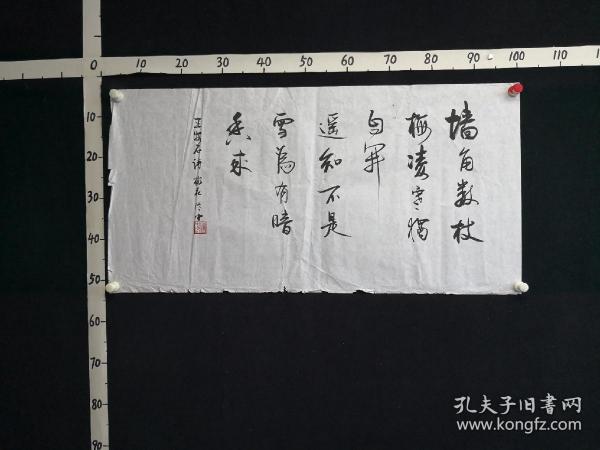 墙角数枝
梅凌寒独
自开
遥知不是
雪为有暗
香来
王安石诗
0 10 20 30 40 50 60 70 80 90 100 110
10
20
30
40
50
60
70
80
90
孔夫子旧书网
www.kongfz.com